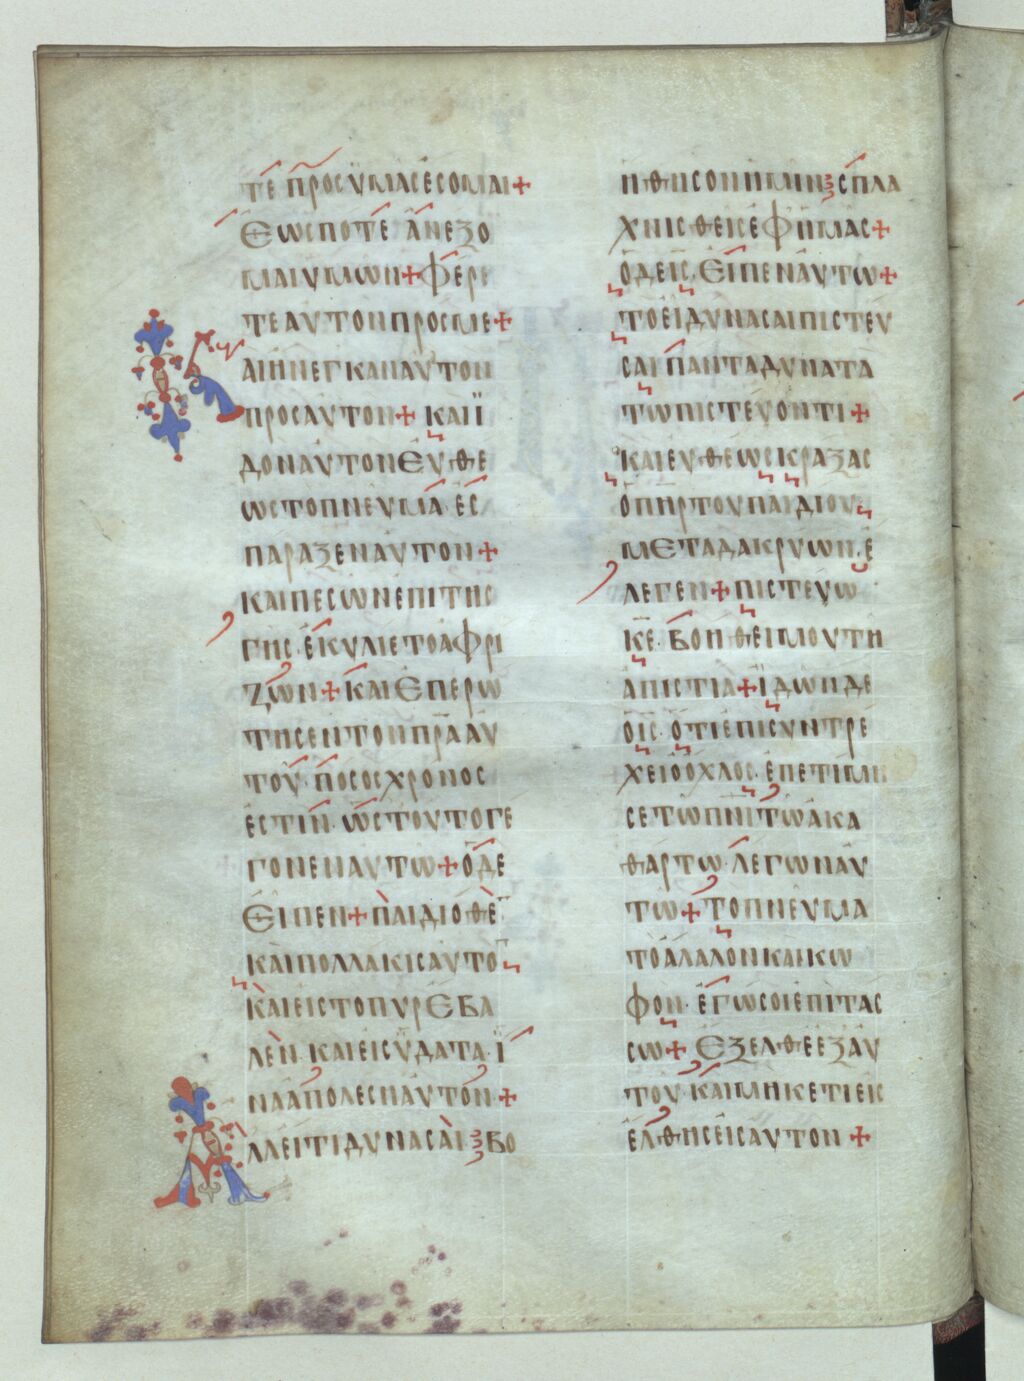 ΤΕ ΠΡΟΣ ΥΜΑΣ ΕΣΟΜΑΙ+
ΕΩΣ ΠΟΤΕ ΑΝΕΞΟ
ΜΑΙ ΥΜΩΝ+ ΦΕΡΕ
ΤΕ ΑΥΤΟΝ ΠΡΟΣ ΜΕ+
ΚΑΙ ΗΝΕΓΚΑΝ ΑΥΤΟΝ
ΠΡΟΣ ΑΥΤΟΝ+ ΚΑΙ Ϊ
ΔΟΝ ΑΥΤΟΝ ΕΥΘΕ
ΩΣ ΤΟ ΠΝΕΥΜΑ ΕΣ
ΠΑΡΑΞΕΝ ΑΥΤΟΝ+
ΚΑΙ ΠΕΣΩΝ ΕΠΙ ΤΗΣ
ΓΗΣ· ΕΚΥΛΙΕΤΟ ΑΦΡΙ
ΖΩΝ+ ΚΑΙ ΕΠΕΡΩ
ΤΗΣΕΝ ΤΟΝ ΠΡΑ ΑΥ
ΤΟΥ· ΠΟΣΟΣ ΧΡΟΝΟΣ
ΕΣΤΙΝ· ΩΣ ΤΟΥΤΟ ΓΕ
ΓΟΝΕΝ ΑΥΤΩ+ Ο ΔΕ
ΕΙΠΕΝ+ ΠΑΙΔΙΟΘΕ̅
ΚΑΙ ΠΟΛΛΑΚΙΣ ΑΥΤΟ̅
ΚΑΙ ΕΙΣ ΤΟ ΠΥΡ ΕΒΑ
ΛΕΝ· ΚΑΙ ΕΙΣ ΫΔΑΤΑ· Ϊ
ΝΑ ΑΠΟΛΕΣΗ ΑΥΤΟΝ+
ΑΛΛ ΕΙ ΤΙ ΔΥΝΑΣΑΙ· ΒΟ
ΗΘΗΣΟΝ ΗΜΙΝ· ΣΠΛΑ
ΧΝΙΣΘΕΙΣ ΕΦ ΗΜΑΣ+
Ο ΔΕ ΙΣ· ΕΙΠΕΝ ΑΥΤΩ+
ΤΟ ΕΙ ΔΥΝΑΣΑΙ ΠΙΣΤΕΥ
ΣΑΙ ΠΑΝΤΑ ΔΥΝΑΤΑ
ΤΩ ΠΙΣΤΕΥΟΝΤΙ+
ΚΑΙ ΕΥΘΕΩΣ ΚΡΑΞΑΣ
Ο ΠΗΡ ΤΟΥ ΠΑΙΔΙΟΥ
ΜΕΤΑ ΔΑΚΡΥΩΝ· Ε
ΛΕΓΕΝ+ ΠΙΣΤΕΥΩ
ΚΕ· ΒΟΗΘΕΙ ΜΟΥ ΤΗ
ΑΠΙΣΤΙΑ+ ΪΔΩΝ ΔΕ
Ο ΙΣ· ΟΤΙ ΕΠΙΣΥΝΤΡΕ
ΧΕΙ Ο ΟΧΛΟΣ· ΕΠΕΤΙΜΗ
ΣΕ ΤΩ ΠΝΙ ΤΩ ΑΚΑ
ΘΑΡΤΩ· ΛΕΓΩΝ ΑΥ
ΤΩ+ ΤΟ ΠΝΕΥΜΑ
ΤΟ ΑΛΑΛΟΝ ΚΑΙ ΚΩ
ΦΟΝ· ΕΓΩ ΣΟΙ ΕΠΙΤΑΣ
ΣΩ+ ΕΞΕΛΘΕ ΕΞ ΑΥ
ΤΟΥ· ΚΑΙ ΜΗΚΕΤΙ ΕΙΣ
ΕΛΘΗΣ ΕΙΣ ΑΥΤΟΝ+